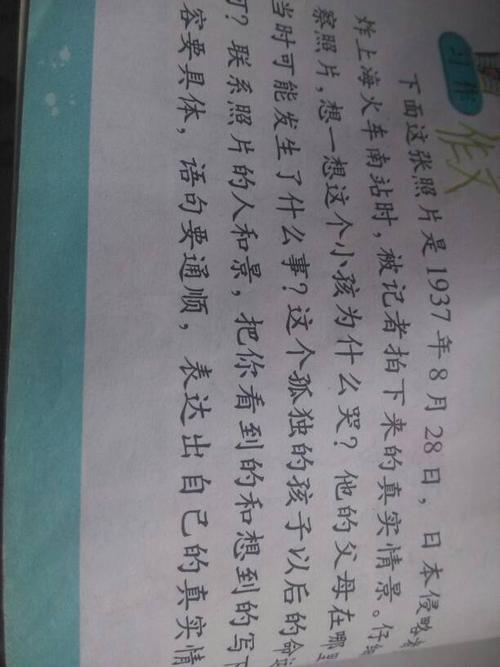 习作
作文
下面这张照片是1937年8月28日，日本侵略
炸上海火车南站时，被记者拍下来的真实情景。仔细
察照片，想一想这个小孩为什么哭？他的父母在哪
当时可能发生了什么事？这个孤独的孩子以后的命
何？联系照片的人和景，把你看到的和想到的写下
容要具体，语句要通顺，表达出自己的真实情